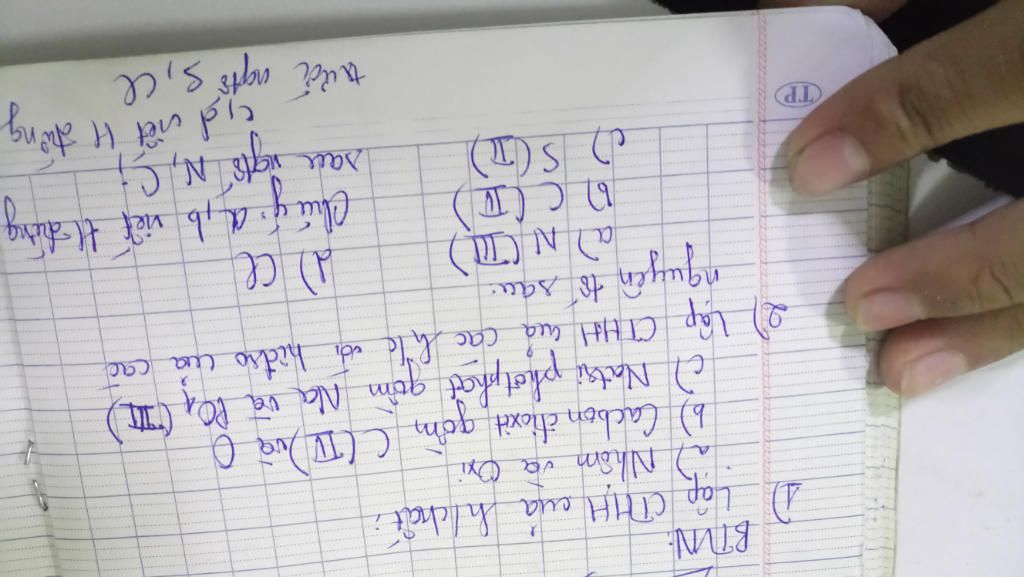 BTVN:
1) Lập CTHH của h/chất:
a) Nhôm và Oxi
b) Cacbon đioxit gồm C(IV) và O
c) Natri photphat gồm Na và PO4 (III)
2) Lập CTHH của các h/c với hidro của các
nguyên tố sau:
a) N (III) d) Cl
b) C (IV) Chú ý: a, b viết H đứng
c) S (II) sau ngtố N, C;
c, d viết H đứng
trước ngtố S, Cl
TP